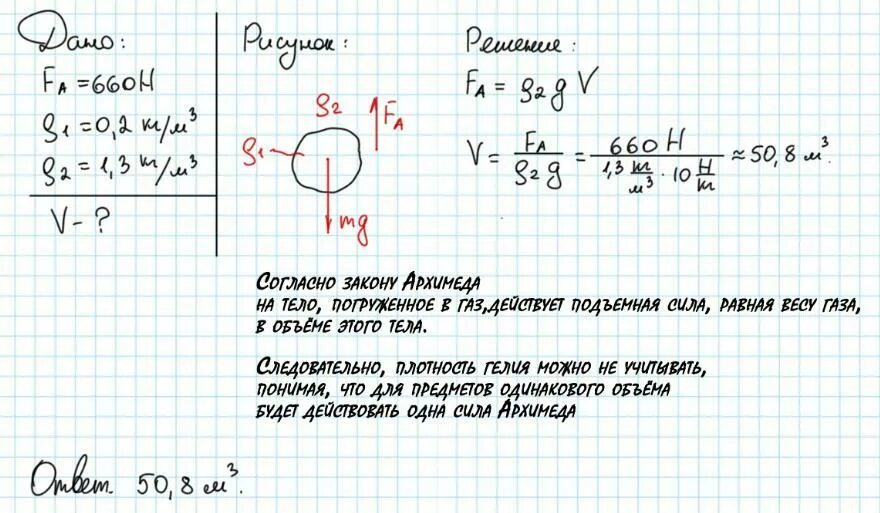 Дано:
F_A = 660 Н
ρ1 = 0,2 кг/м³
ρ2 = 1,3 кг/м³
V - ?
Рисунок:
ρ2
F_A
ρ1
mg
Решение:
F_A = ρ2 g V
V = F_A / ρ2 g = 660 Н / 1,3 кг/м³ · 10 Н/кг ≈ 50,8 м³.
Согласно закону Архимеда
на тело, погруженное в газ,действует подъемная сила, равная весу газа,
в объёме этого тела.
Следовательно, плотность гелия можно не учитывать,
понимая, что для предметов одинакового объёма
будет действовать одна сила Архимеда
Ответ. 50,8 м³.